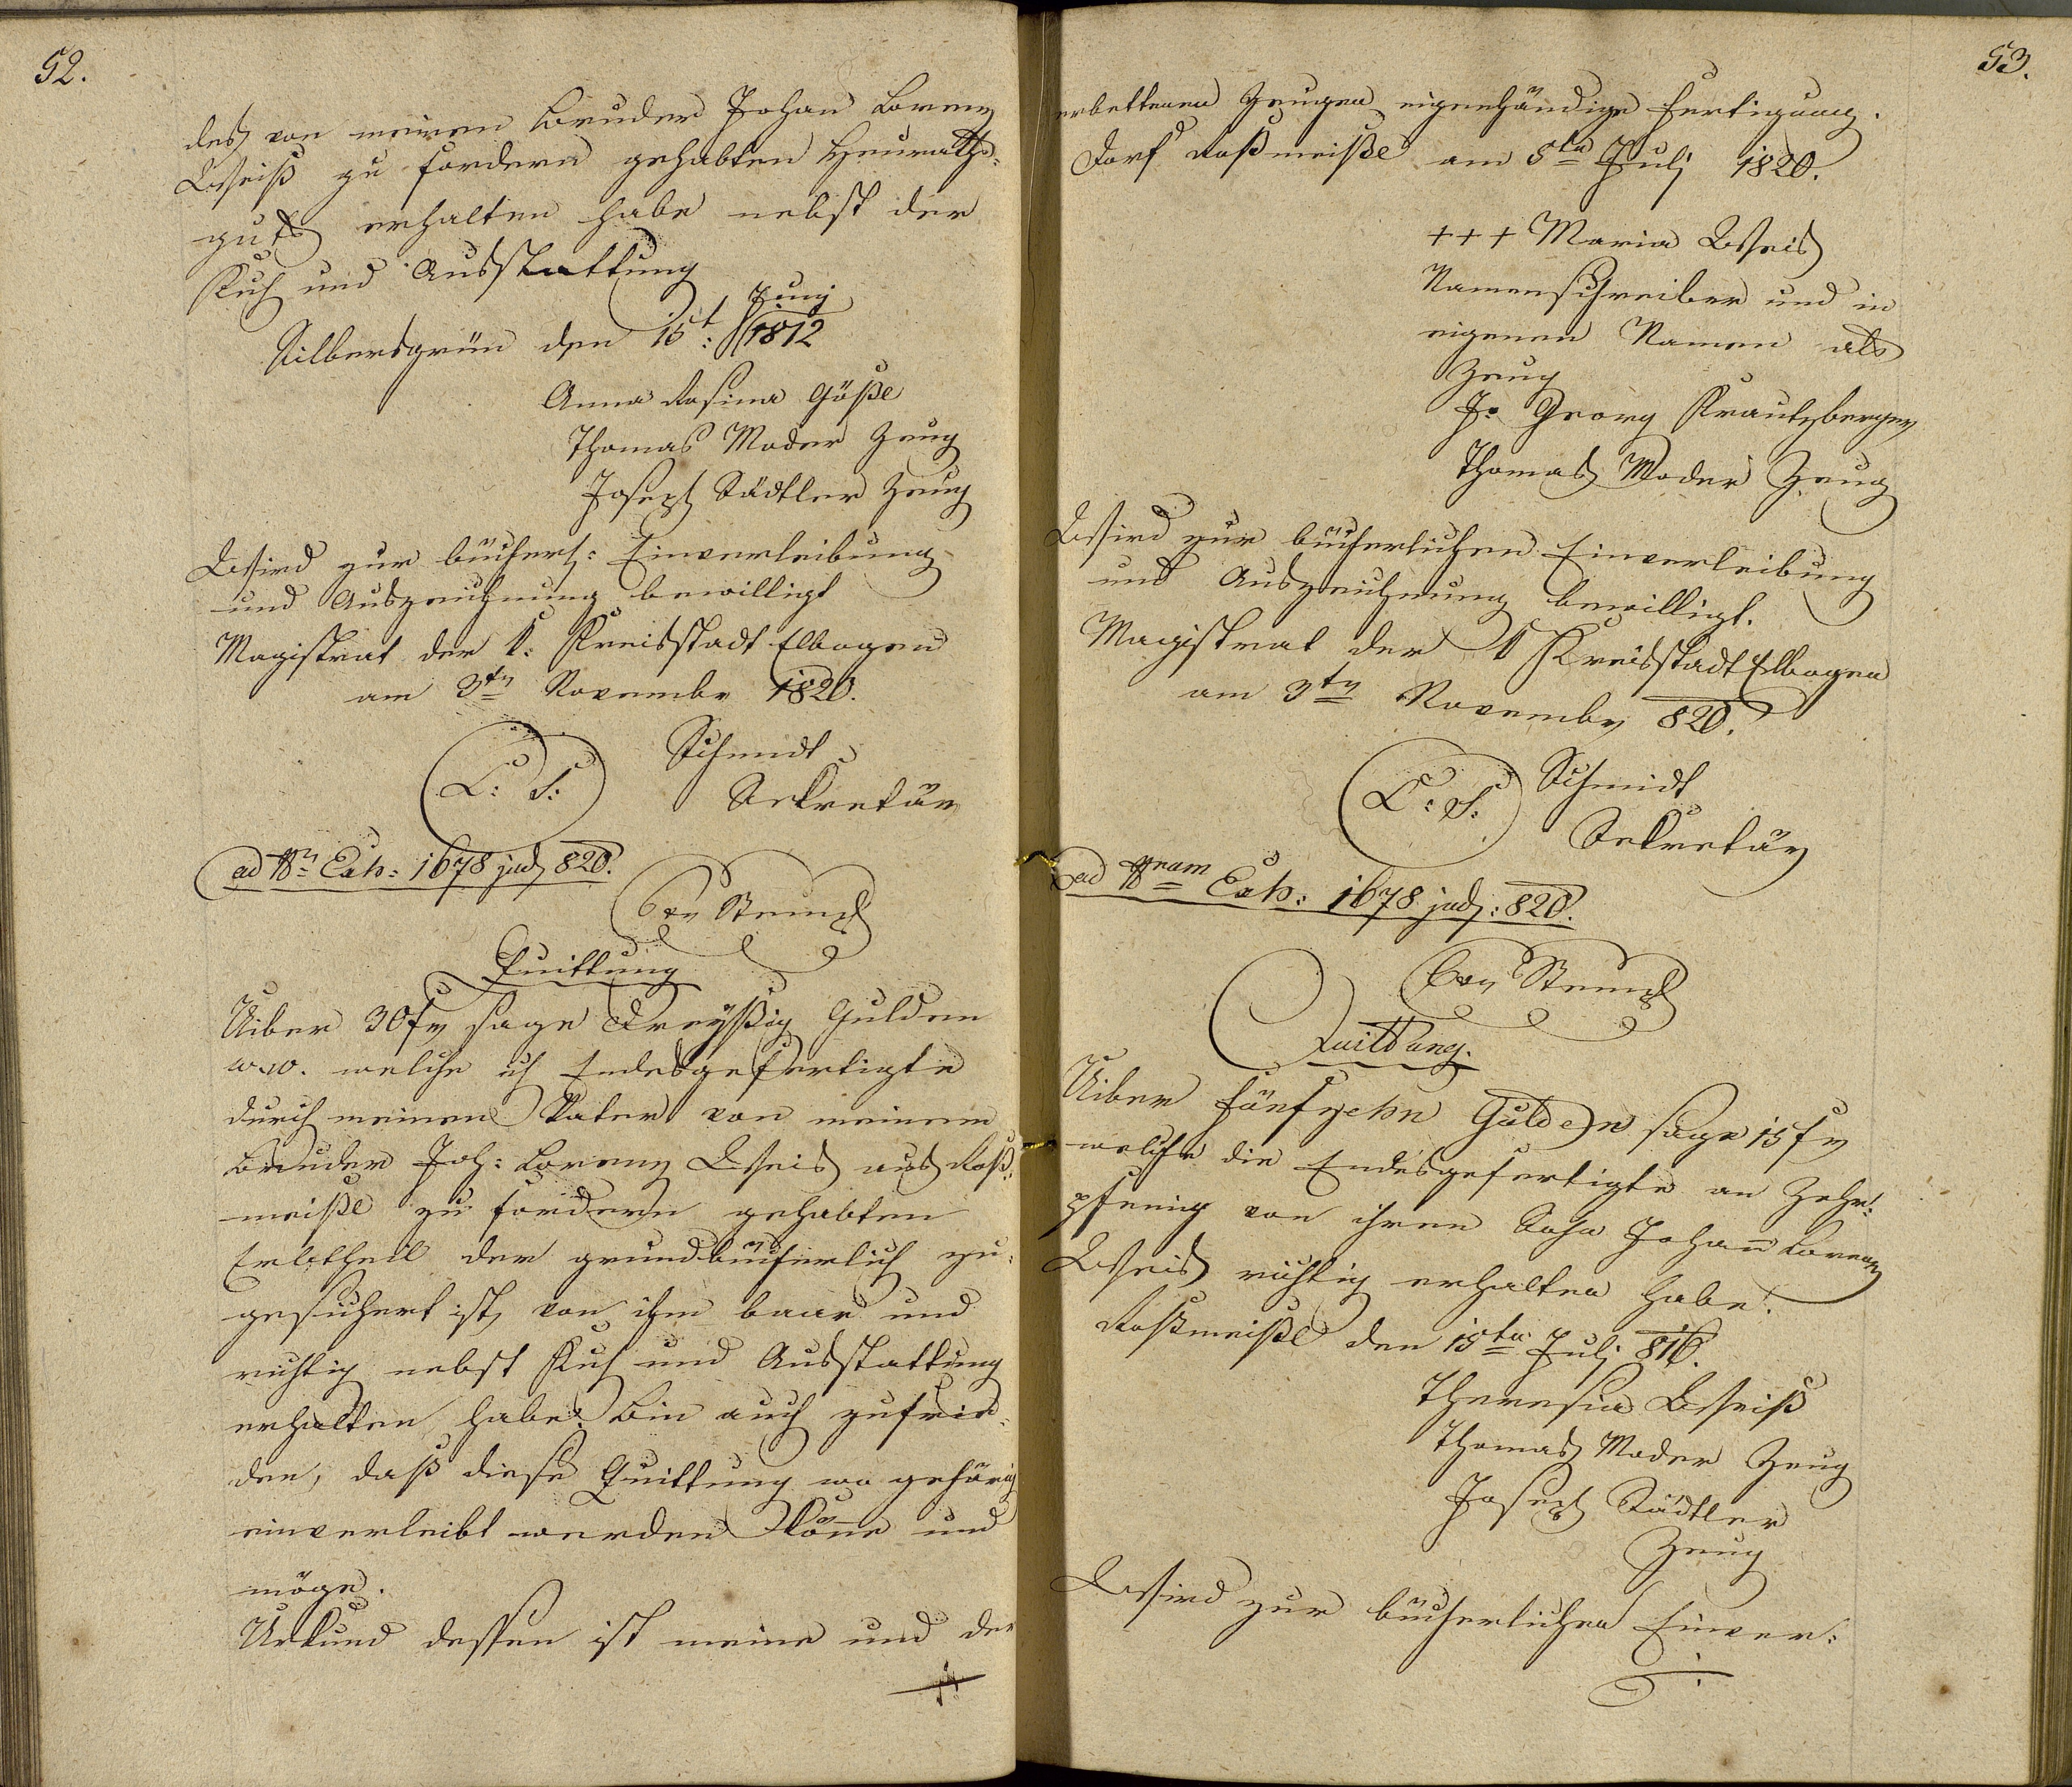 52.
des von meinen Bruder Johan Lorenz
Weiß zu fordern gehabten Heuraths-
guts erhalten habe nebst der
Kuh und Ausstattung
Silbersgrün den 15t: Juny 1812
Anna Rosina Göße
Thomas Moder Zeug
Joseph Städtler Zeug
Wird zur bücherl: Einverleibung
und Auszeichnung bewilligt
Magistrat der k: Kreisstadt Elbogen
am 3tn Novembr 1820.
L: S: Schmidt
Sekretär
ad Nr Exh: 1678 jud 820.
Quittung
Uiber 30 fr sage Dreyßig Gulden
w.w. welche ich Endesgefertigte
durch meinen Vater von meinem
Bruder Joh: Lorenz Weis aus Roß-
meißl zu fordern gehabten
Erbtheil der grundbücherlich zu-
gesichert ist, von ihm baar und
richtig nebst Kuh und Ausstattung
erhalten habe. Bin auch zufrie-
den, daß diese Quittung wo gehörig
einverleibt werden könne und
möge.
Urkund dessen ist meine und der
53.
erbettenen Zeugen eigenhändige Fertigung.
Dorf Roßmeißl am 5tn Juli 1820.
+++ Maria Weis
Namenschreiber und in
eigenen Namen als
Zeug
J. Georg Krautzberger
Thomas Moder Zeug
Wird zur bücherlichen Einverleibung
und Auszeichnung bewilligt.
Magistrat der k Kreisstadt Elbogen
am 3tn Novembr 820.
L: S: Schmidt
Sekretär
ad Nram Exh: 1678 jud: 820.
Quittung.
Uiber fünfzehn Gulden sage 15 fr
welche die Endesgefertigte an Zehr-
pfenig von ihren Sohn Johann Lorenz
Weis richtig erhalten habe.
Roßmeißl den 15tn Juli 816.
Theresia Weiß
Thomas Moder Zeug
Joseph Städtler
Zeug
Wird zur bücherlichen Einver-